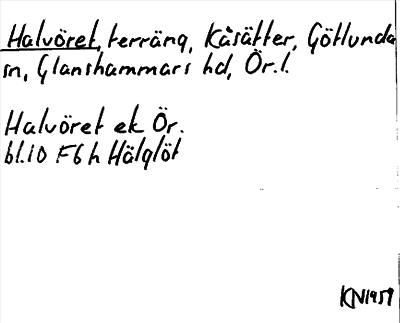 Halvöret, terräng, Kåsätter, Götlunda
sn, Glanshammars hd, Ör.l.
Halvöret ek Ör.
bl.10 F6h Hälglöt
KN1959